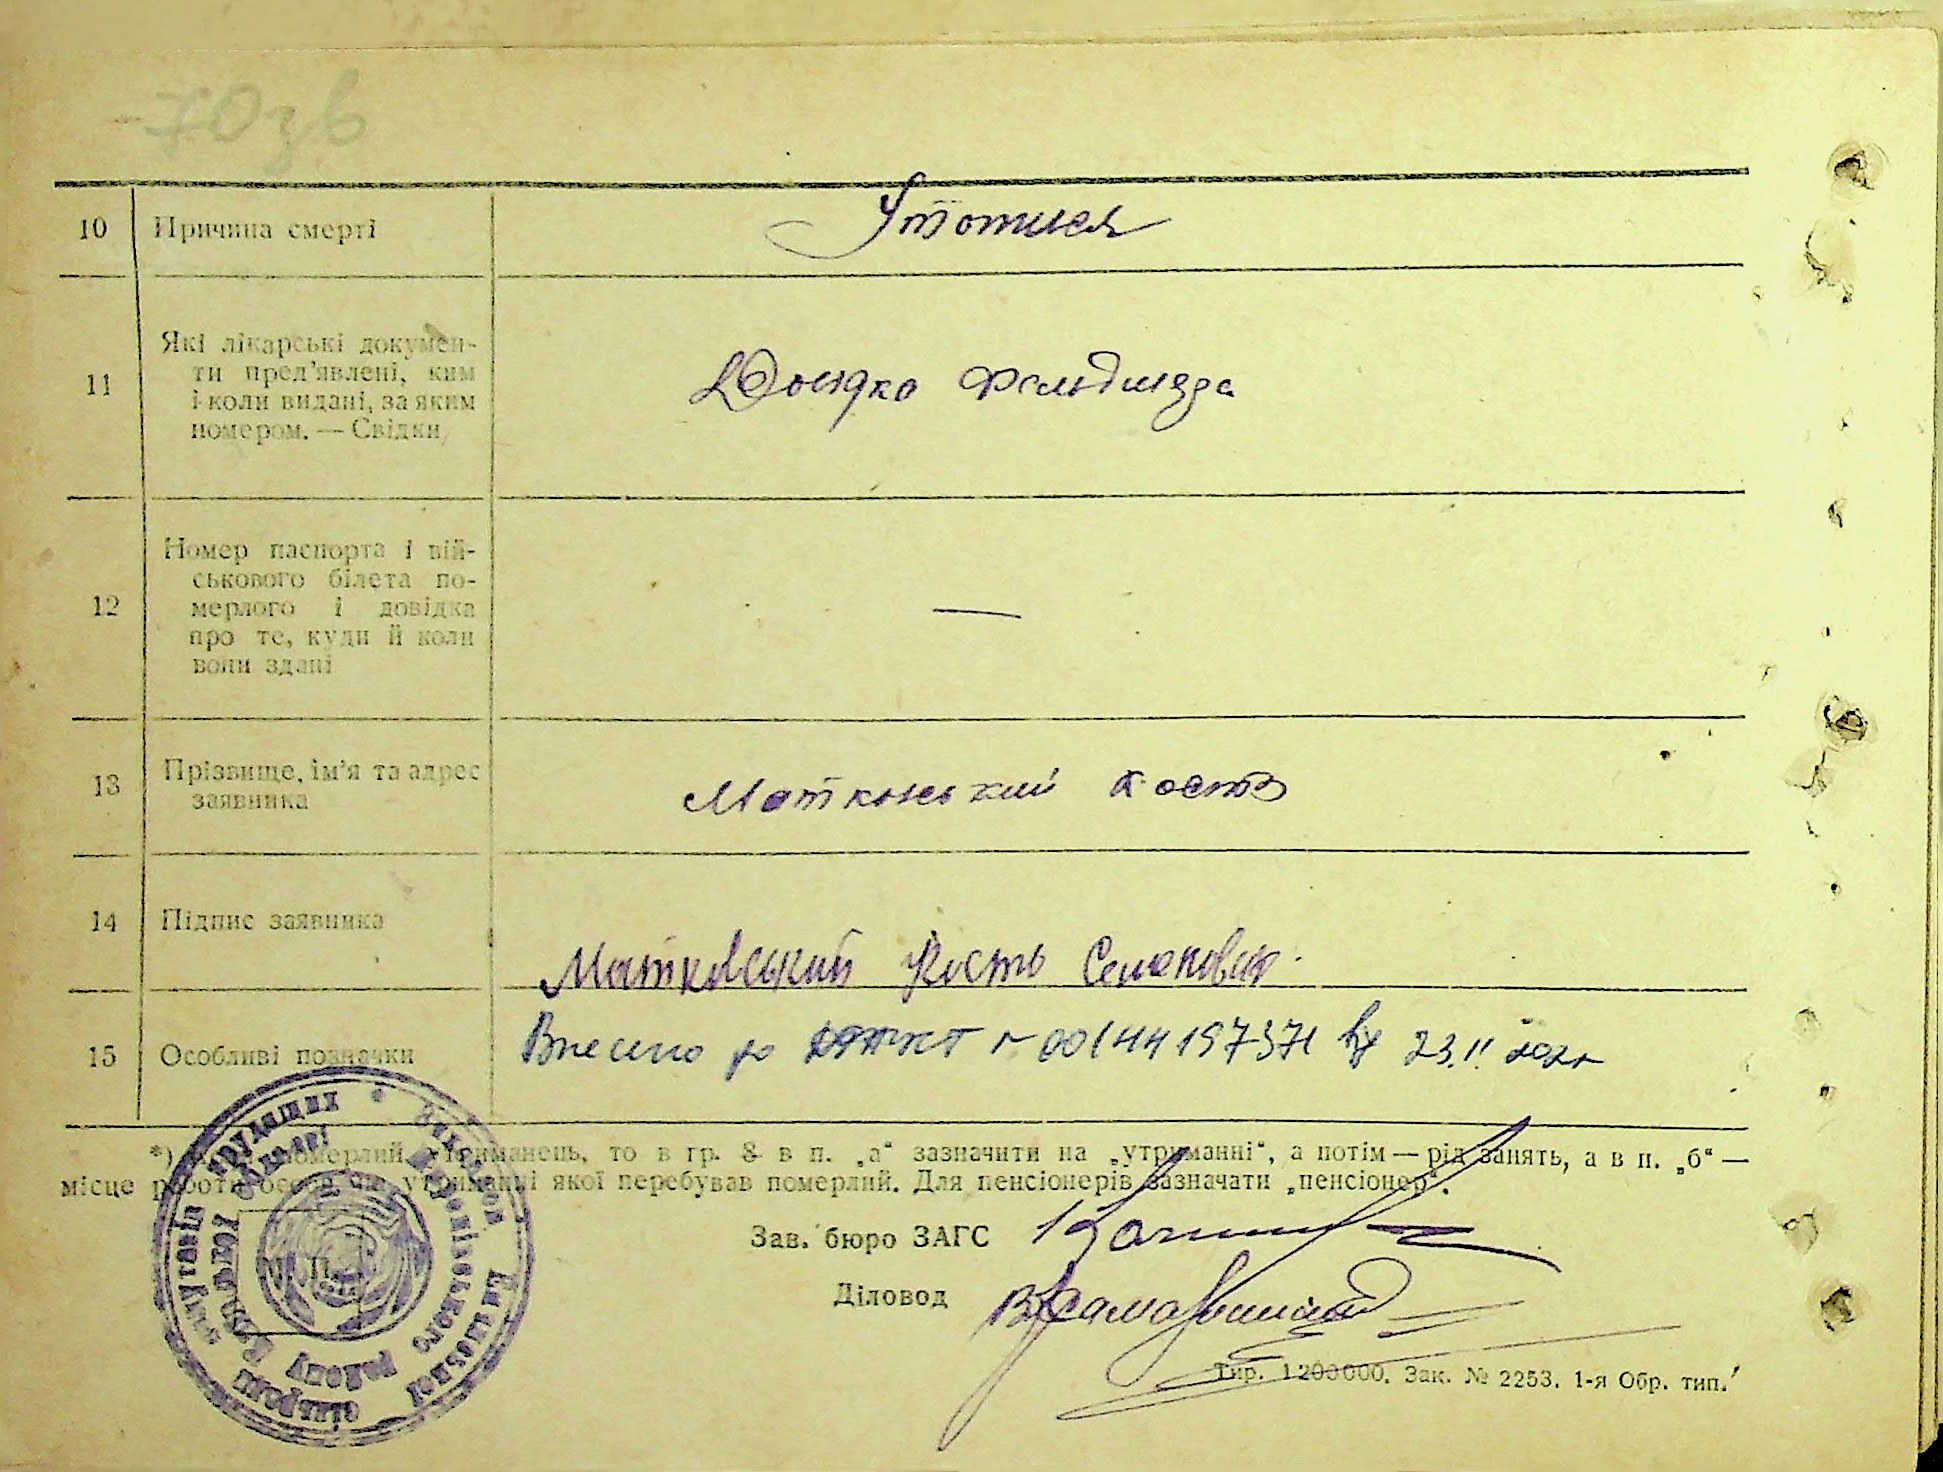 70 зв
10 Причина смерті Утопився
11 Які лікарські докумен-
ти пред'явлені, ким
і коли видані, за яким
номером. — Свідки
Довідка Фельдшера
12 Номер паспорта і вій-
ськового білета по-
мерлого і довідка
про те, куди й коли
вони здані
—
13 Прізвище, ім'я та адрес
заявника
Матковський Кость
14 Підпис заявника
Матковський Кость Семенович
15 Особливі позначки
Внесено до ДРАЦСГ № 00144197371 23.11.2021
*) померлий утриманець, то в гр. 8 в п. „а“ зазначити на „утриманні“, а потім — рід занять, а в п. „б“ —
місце роботи особи, на утриманні якої перебував померлий. Для пенсіонерів зазначати „пенсіонер“.
Зав. бюро ЗАГС
Діловод
Тир. 1200000. Зак. № 2253. 1-я Обр. тип.